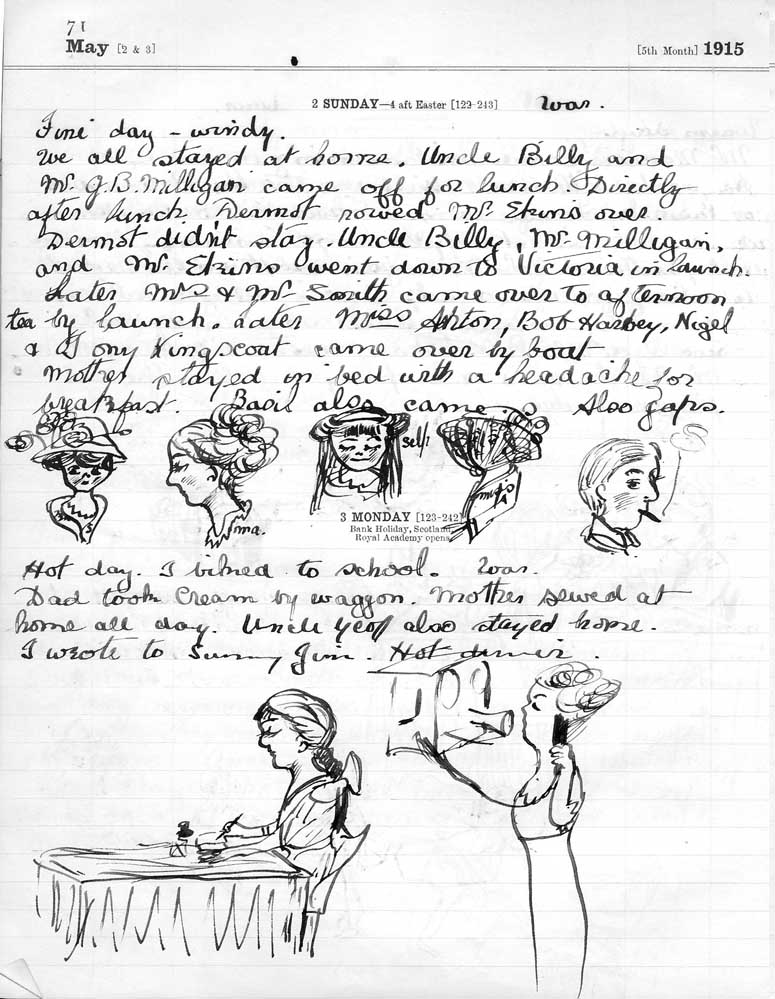 71
May [2 & 3] [5th Month] 1915
2 SUNDAY—4 aft Easter [122-243] War.
Fine day – windy.
We all stayed at home. Uncle Billy and
Mr. J.B. Milligan came off for lunch. Directly
after lunch. Dermot rowed Mr. Ekins over.
Dermot didn't stay. Uncle Billy, Mr. Milligan,
and Mr. Ekins went down to Victoria in launch.
Later Mrs & Mr. Smith came over to afternoon
tea by launch. Later Miss Ashton, Bob Harvey, Nigel
& Tony Kingscoat came over by boat
Mother stayed in bed with a headache for
breakfast. Basil also came. Also Japs.
self
ma.
3 MONDAY [123-242]
Bank Holiday, Scotland
Royal Academy opens
Hot day. I biked to school. War.
Dad took Cream by waggon. Mother sewed at
home all day. Uncle Geof also stayed home.
I wrote to Sunny Jim. Hot dinner.